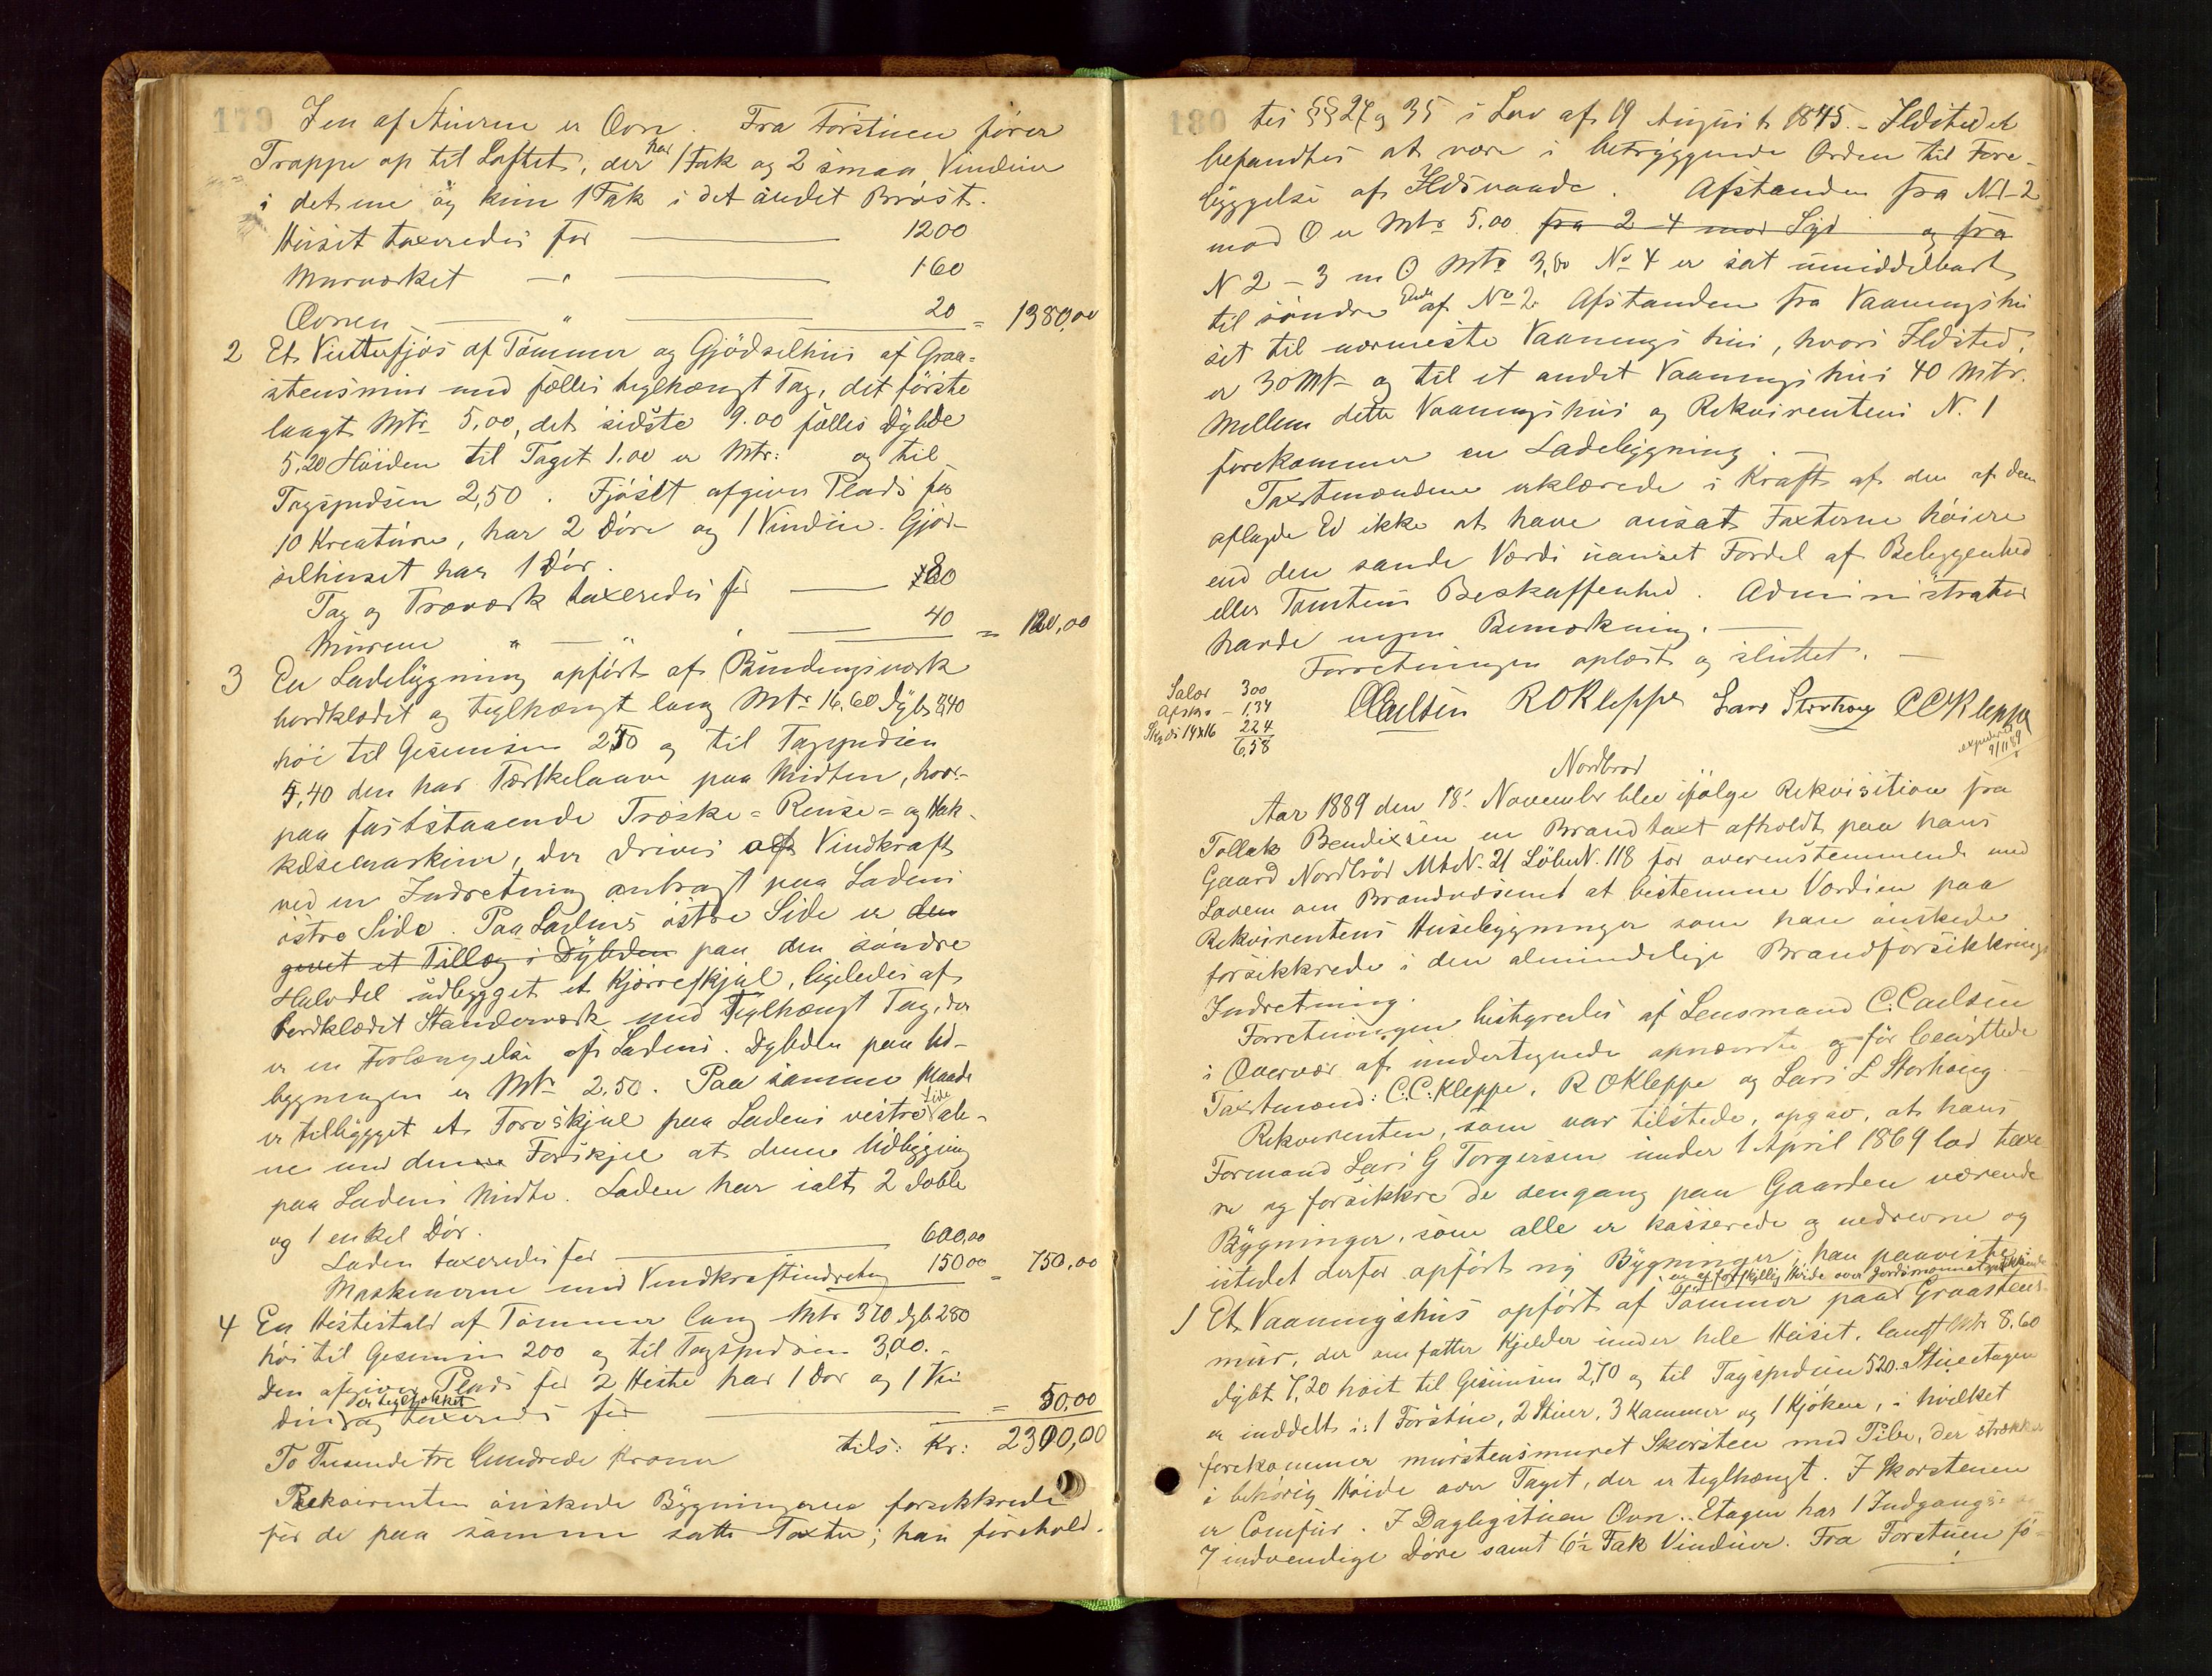 179
I en af Stuerne er Ovn. Fra Forstuen fører
Trappe op til Loftet, der har 1 Fak og 2 smaa Vinduer
i det ene og kun 1 Fak i det andet Brøst.
Huset taxeredes for — 1200
Murværket — " — 160
Ovnen — " — 20 = 1380,00
2 Et Vinterfjøs af Tømmer og Gjødselhus af Graa=
stensmur med fælles teglhængt Tag, det første
langt Mtr 5,00, det sidste 9.00 fælles Dybde
5,20 Høiden til Taget 1.00 er Mtr: og til
Tagspidsen 2,50. Fjøset afgiver Plads for
10 Kreaturer, har 2 Døre og 1 Vindue. Gjød-
selhuset har 1 Dør.
Tag og Træværk taxeredes for — 80
Murene " — " — 40 = 120,00
3 En Ladebygning opført af Bindingsværk
bordklædt og teglhængt lang Mtr 16.60 Dyb 8,40
høi til Gesimsen 2,50 og til Tagspidsen
5,40 den har Tærskelaave paa Midten, hvor-
paa faststaaende Træske= Rense= og Hak-
kelsemaskine, der drives af Vindkraft
ved en Indretning anbragt paa Ladens
østre Side. Paa Ladens østre Side er den
gjort et Tillæg i Dybden paa den søndre
Halvdel udbygget et Kjørreskjul, ligeledes af
bordklædt Standerværk med Teglhængt Tag, der
er en Forlængelse af Ladens. Dybden paa Ud-
bygningen er Mtr 2.50. Paa samme Maade
er tilbygget et Torvskjul paa Ladens vestre Side ale-
ne med denne Forskjel at denne Udbygning
paa Ladens Midte. Laden har ialt 2 doble
og 1 enkel Dør.
Laden taxeredes for — 600,00
Maskinerne med Vindkraftindretng 150 00 = 750,00
4 En Hestestald af Tømmer lang Mtr 370 dyb 280
høi til Gesimsen 200 og til Tagspidsen 3,00.-
Den afgiver Plads for 2 Heste har 1 Dør og 1 Vin
due er teglhækket og taxeredes for — = 50,00
To Tusende tre Hundrede Kroner tils: Kr: 2300,00
Rekvirenten ønskede Bygningerne forsikkrede
for de paa samme satte Taxter; han forehold-
180
tes §§ 24 og 35 i Lov af 19 August 1845.- Ildstedet
befandtes at være i betryggende Orden til Fore-
byggelse af Ildsvaade. Afstanden fra N 1-2
mod O er Mtr 5.00. fra 2-4 mod Syd og fra
N 2 - 3 m O Mtr 3,60 No 4 er sat umiddelbart
til søndre Ende af No 2. Afstanden fra Vaaningshu
set til nærmeste Vaanings hus, hvori Ildsted,
er 30 Mtr og til et andet Vaaningshus 40 Mtr.
Mellem dette Vaaningshus og Rekvirentens N. 1
forekommer en Ladebygning.
Taxtmændene erklærede i Kraft af den af dem
aflagde Ed ikke at have ansat Taxterne høiere
end den sande Værdi uanset Fordel af Beliggenhed
eller Tomtens Beskaffenhed. Administrator
havde ingen Bemærkning. —
Forretningen oplæst og sluttet. —
Salær 300
Afskr - 1,34
Skyds 14x16 224
6,58
CCarlsen R O Kleppe Lars Storhoug C C Kleppe
expederet 9/11 89
Nordbrød
Aar 1889 den 18. November blev ifølge Rekvisition fra
Tollak Bendixsen en Brandtaxt afholdt paa hans
Gaard Nordbrød Mt.N. 21 LøbeN. 118 for overenstemmende med
Loven om Brandvæsenet at bestemme Værdien paa
Rekvirentens Husebygninger som han ønskede
forsikkrede i den almindelige Brandforsikkrings
Indretning.
Forretningen bestyredes af Lensmand C. Carlsen
i Overvær af undertegnede opnævnte og før beedigede
Taxtmænd: C.C. Kleppe, R O Kleppe og Lars L Storhaug.
Rekvirenten, som var tilstede, opgav, at hans
Formand Lars G Torgersen under 1 April 1869 lod taxe
re og forsikkre de dengang paa Gaarden værende
Bygninger, som alle er kasserede og nedrevne og
istedet derfor opført ny Bygninger, han paaviste:
1 Et Vaaningshus opført af Tømmer paa en af forskjellig Høide over Jordsmonnet Graastens-
mur, der omfatter Kjelder under hele Huset, langt Mtr 8,60
dybt 7,20 høit til Gesimsen 2,70 og til Tagspidsen 520. Stueetagen
er inddelt i: 1 Forstue, 2 Stuer, 3 Kammer og 1 Kjøken, i hvilket
forekommer murstensmuret Skorsten med Pibe, der strækker
i behørig Høide over Taget, der er teglhængt. I Skorstenen
er Comfur. I Dagligstuen Ovn. Etagen har 1 Indgangs= og
7 indvendige Døre samt 6½ Fak Vinduer. Fra Forstuen fø-